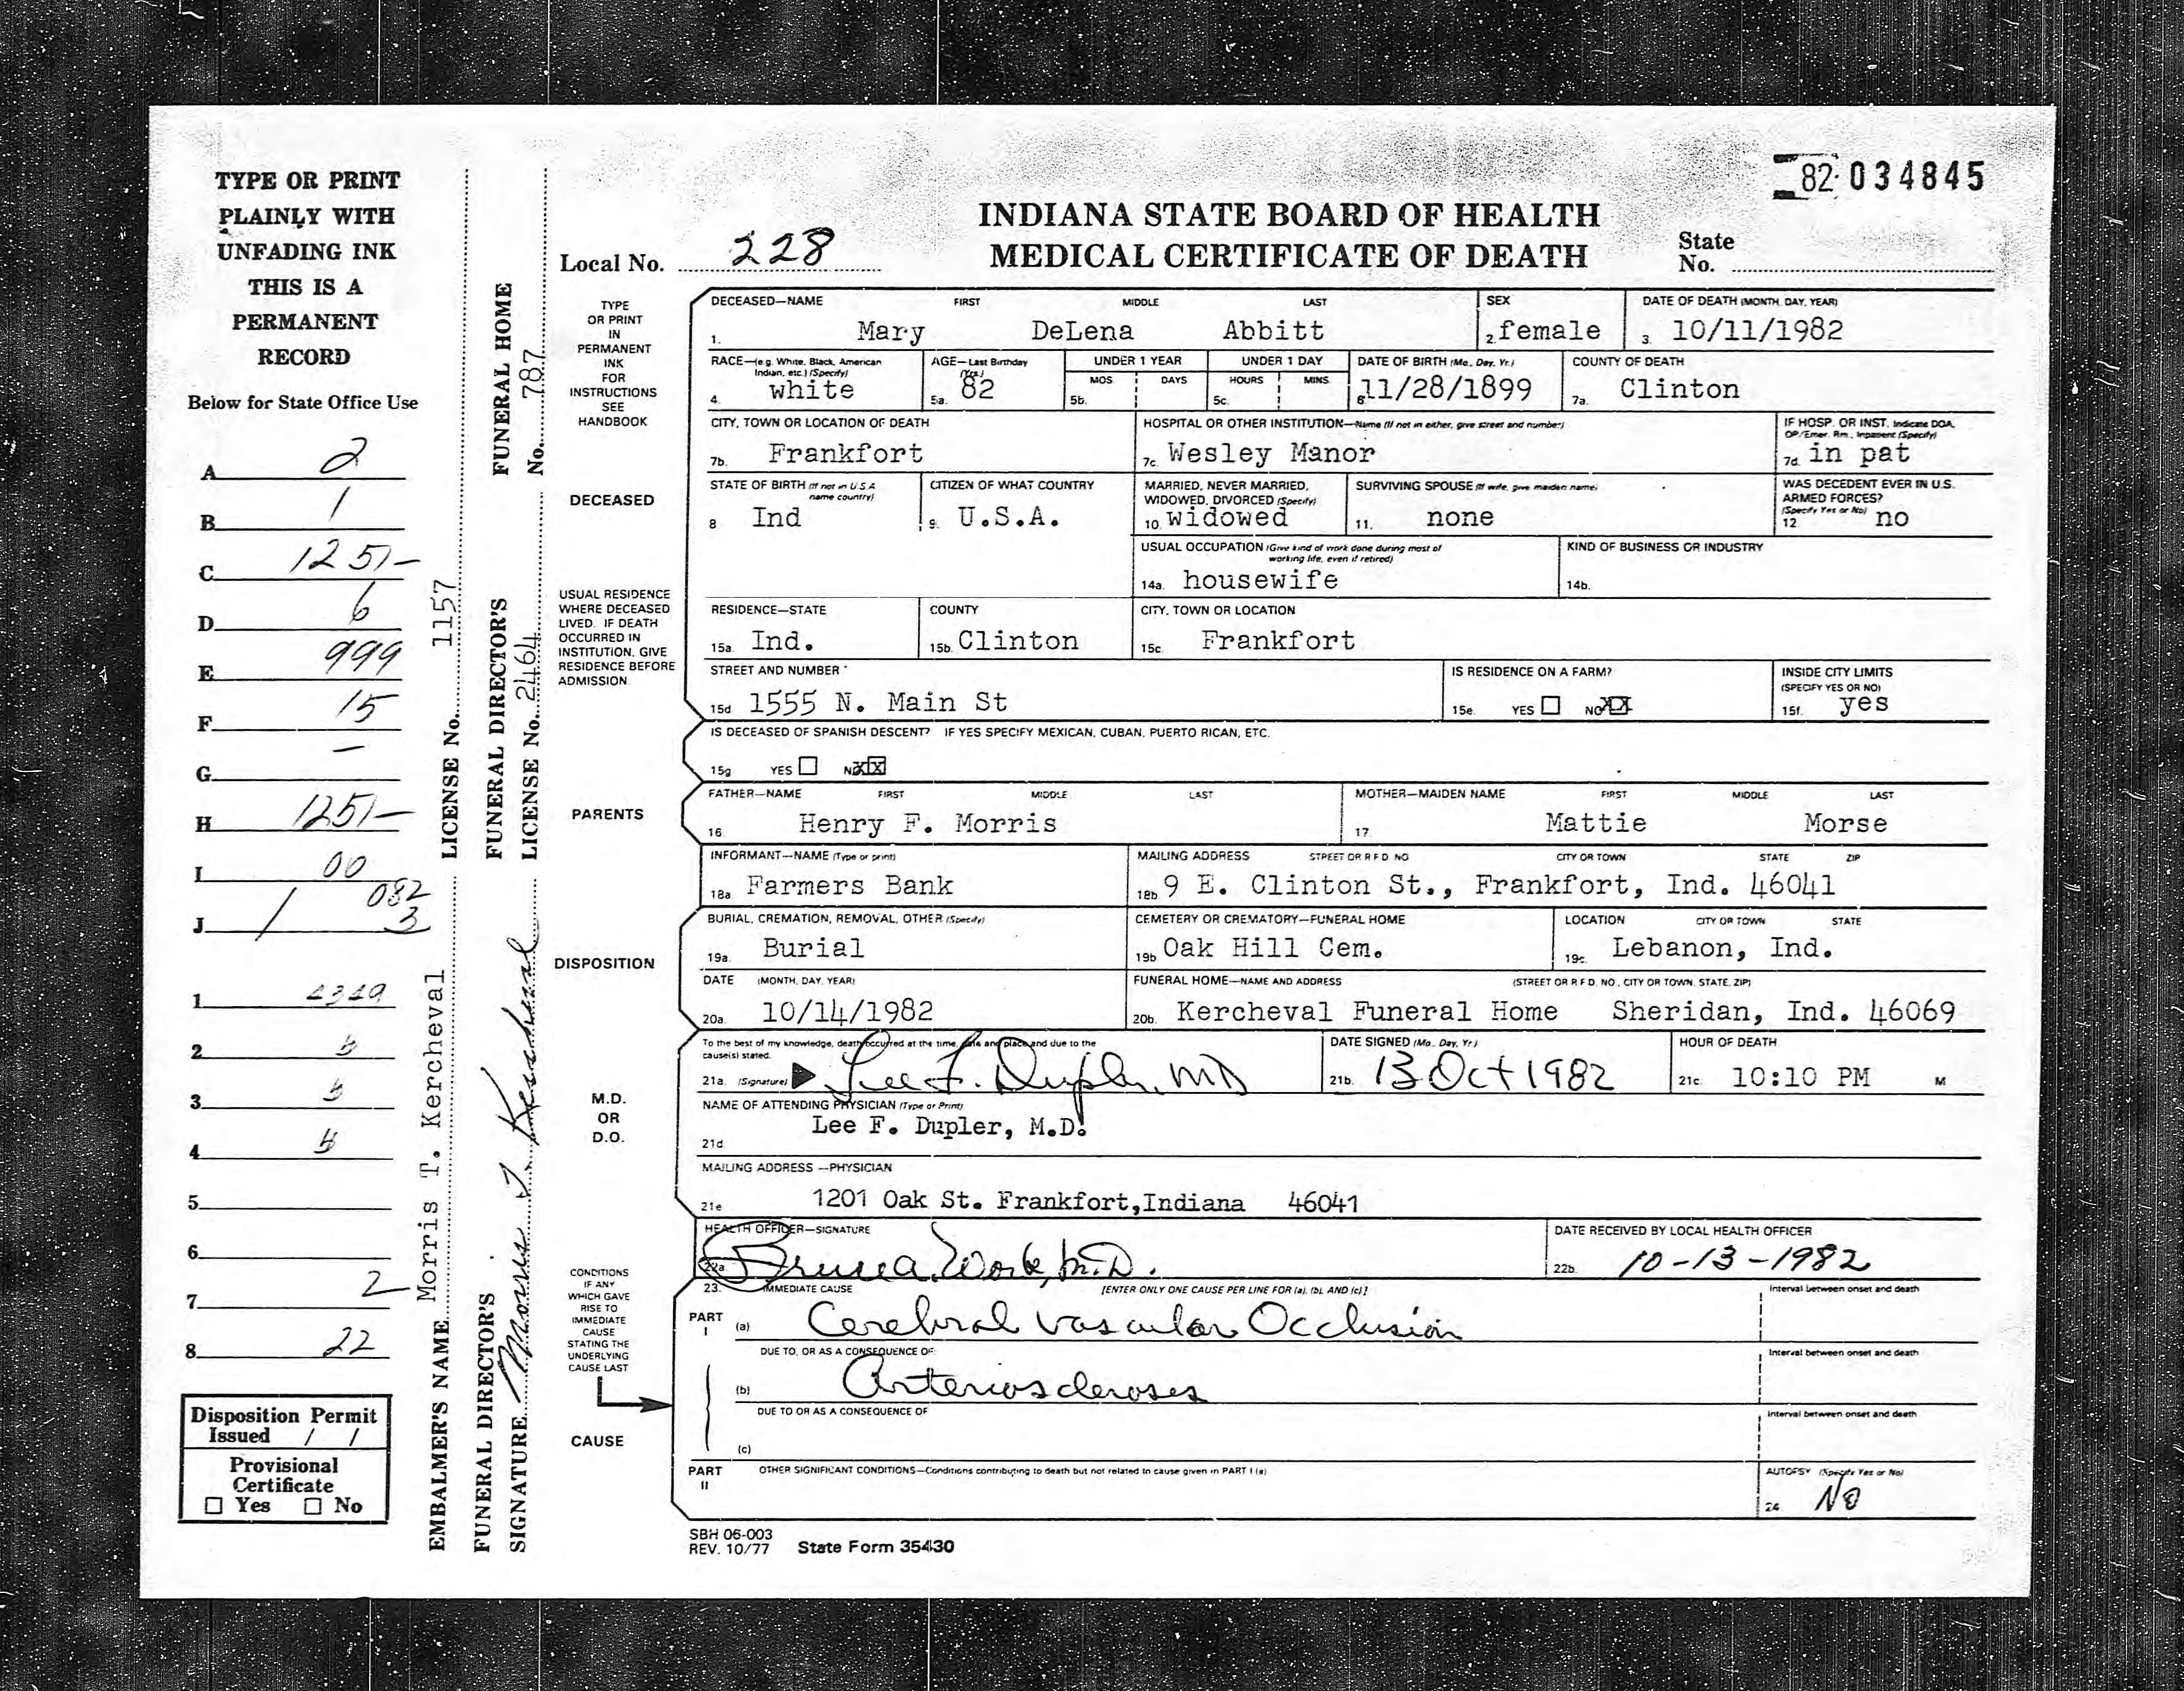 TYPE OR PRINT
PLAINLY WITH
UNFADING INK
THIS IS A
PERMANENT
RECORD
Below for State Office Use
A 2
B 1
C 1251-
D 6
E 999
F 15
G —
H 1251-
I 00
082
J 1 3
1 4349
2
3
4
5
6
7 2
8 22
Disposition Permit
Issued / /
Provisional
Certificate
☐ Yes ☐ No
EMBALMER'S NAME Morris T. Kercheval LICENSE No. 1157
FUNERAL DIRECTOR'S FUNERAL DIRECTOR'S FUNERAL HOME
SIGNATURE Morris T. Kercheval LICENSE No. 2464 No. 787
82 034845
INDIANA STATE BOARD OF HEALTH
MEDICAL CERTIFICATE OF DEATH
Local No. 228
State
No.
TYPE
OR PRINT
IN
PERMANENT
INK
FOR
INSTRUCTIONS
SEE
HANDBOOK
DECEASED—NAME FIRST MIDDLE LAST SEX DATE OF DEATH (MONTH, DAY, YEAR)
1. Mary DeLena Abbitt 2. female 3. 10/11/1982
RACE—(e.g. White, Black, American AGE—Last Birthday UNDER 1 YEAR UNDER 1 DAY DATE OF BIRTH (Mo., Day, Yr.) COUNTY OF DEATH
Indian, etc.) (Specify) (Yrs.) MOS. DAYS HOURS MINS.
4. white 5a. 82 5b. 5c. 6. 11/28/1899 7a. Clinton
CITY, TOWN OR LOCATION OF DEATH HOSPITAL OR OTHER INSTITUTION—Name (If not in either, give street and number) IF HOSP. OR INST. Indicate DOA,
OP/Emer. Rm., Inpatient (Specify)
7b. Frankfort 7c. Wesley Manor 7d. in pat
DECEASED
STATE OF BIRTH (If not in U.S.A. name country) CITIZEN OF WHAT COUNTRY MARRIED, NEVER MARRIED, WIDOWED, DIVORCED (Specify) SURVIVING SPOUSE (If wife, give maiden name) WAS DECEDENT EVER IN U.S. ARMED FORCES? (Specify Yes or No)
8 Ind 9. U.S.A. 10. widowed 11. none 12 no
USUAL OCCUPATION (Give kind of work done during most of working life, even if retired) KIND OF BUSINESS OR INDUSTRY
14a. housewife 14b.
USUAL RESIDENCE
WHERE DECEASED
LIVED. IF DEATH
OCCURRED IN
INSTITUTION, GIVE
RESIDENCE BEFORE
ADMISSION
RESIDENCE—STATE COUNTY CITY, TOWN OR LOCATION
15a. Ind. 15b. Clinton 15c. Frankfort
STREET AND NUMBER IS RESIDENCE ON A FARM? INSIDE CITY LIMITS
(SPECIFY YES OR NO)
15d 1555 N. Main St 15e. YES ☐ NO XX 15f. yes
IS DECEASED OF SPANISH DESCENT? IF YES SPECIFY MEXICAN, CUBAN, PUERTO RICAN, ETC.
15g YES ☐ NO XX
PARENTS
FATHER—NAME FIRST MIDDLE LAST MOTHER—MAIDEN NAME FIRST MIDDLE LAST
16. Henry F. Morris 17. Mattie Morse
INFORMANT—NAME (Type or print) MAILING ADDRESS STREET OR R F D NO CITY OR TOWN STATE ZIP
18a Farmers Bank 18b 9 E. Clinton St., Frankfort, Ind. 46041
DISPOSITION
BURIAL, CREMATION, REMOVAL, OTHER (Specify) CEMETERY OR CREMATORY—FUNERAL HOME LOCATION CITY OR TOWN STATE
19a. Burial 19b Oak Hill Cem. 19c. Lebanon, Ind.
DATE (MONTH, DAY, YEAR) FUNERAL HOME—NAME AND ADDRESS (STREET OR R F D. NO., CITY OR TOWN, STATE, ZIP)
20a. 10/14/1982 20b. Kercheval Funeral Home Sheridan, Ind. 46069
M.D.
OR
D.O.
To the best of my knowledge, death occurred at the time, date and place and due to the DATE SIGNED (Mo., Day, Yr.) HOUR OF DEATH
cause(s) stated.
21a. (Signature) Lee F. Dupler, MD 21b. 13 Oct 1982 21c. 10:10 PM M
NAME OF ATTENDING PHYSICIAN (Type or Print)
21d Lee F. Dupler, M.D.
MAILING ADDRESS—PHYSICIAN
21e 1201 Oak St. Frankfort, Indiana 46041
HEALTH OFFICER—SIGNATURE DATE RECEIVED BY LOCAL HEALTH OFFICER
22a Work, M.D. 22b. 10-13-1982
CONDITIONS
IF ANY
WHICH GAVE
RISE TO
IMMEDIATE
CAUSE
STATING THE
UNDERLYING
CAUSE LAST
CAUSE
23. IMMEDIATE CAUSE [ENTER ONLY ONE CAUSE PER LINE FOR (a), (b), AND (c)] Interval between onset and death
PART I (a) Cerebral vascular Occlusion
DUE TO, OR AS A CONSEQUENCE OF: Interval between onset and death
(b) Arteriosclerosis
DUE TO OR AS A CONSEQUENCE OF Interval between onset and death
(c)
PART II OTHER SIGNIFICANT CONDITIONS—Conditions contributing to death but not related to cause given in PART I (a) AUTOPSY (Specify Yes or No)
24 NO
SBH 06-003
REV. 10/77 State Form 35430